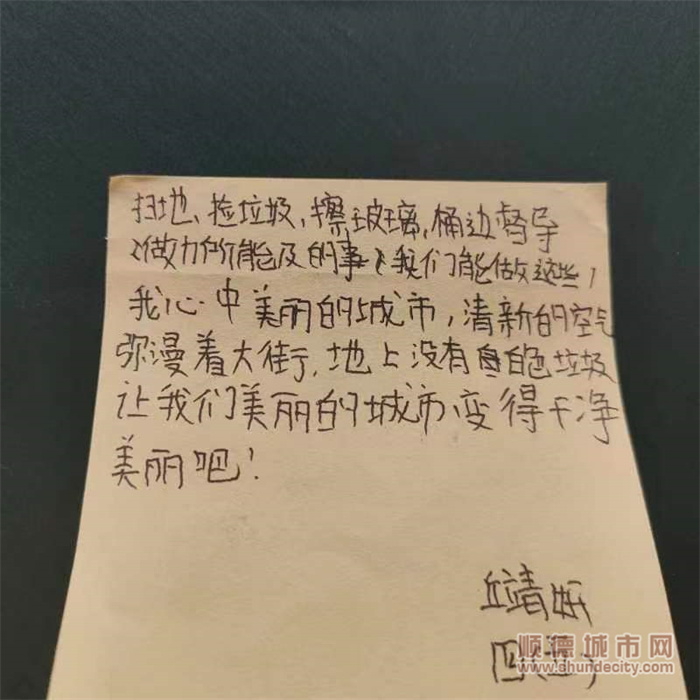 扫地、捡垃圾,擦玻璃,桶边督导
做力所能及的事,我们能做这些,
我心中美丽的城市,清新的空气
弥漫着大街,地上没有白色垃圾
让我们美丽的城市变得干净
美丽吧!
丘靖妍
四
顺德城市网
www.shundecity.com